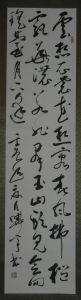 雲想衣裳花想容春風拂檻
露華濃若非群玉山頭見會向
瑤臺月下逢